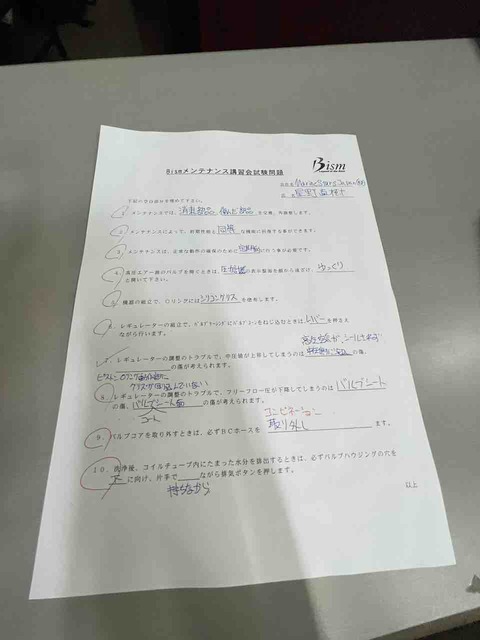 Bism
Bismメンテナンス講習会試験問題
会社名 Marine Stars Japan
氏名
下記の空白部分を埋めて下さい。
1. メンテナンスでは、消耗部品 を交換、再調整します。
2. メンテナンスによって、初期性能と同等な機能に回復する事ができます。
3. メンテナンスは、正常な動作の確保のために定期的に行う事が必要です。
4. 高圧エアー源のバルブを開くときは、圧力計の表示盤面を顔から遠ざけ ゆっくり
と開いて下さい。
5. 機器の組立で、Oリングにはシリコングリスを使用します。
6. レギュレーターの組立で、 をねじ込むときはレバーを押さえ
ながら行います。
7. レギュレーターの調整のトラブルで、中圧値が上昇してしまうのは の傷、
の傷が考えられます。
8. レギュレーターの調整のトラブルで、フリーフロー圧が下降してしまうのは バルブシート
の傷、バルブシート面 の傷が考えられます。
コンビネーション
9. バルブコアを取り外すときは、必ずBCホースを 取り外し ます。
10. 洗浄後、コイルチューブ内にたまった水分を排出するときは、必ずバルブハウジングの穴を
下に向け、片手で ながら排気ボタンを押します。
持ちながら
以上